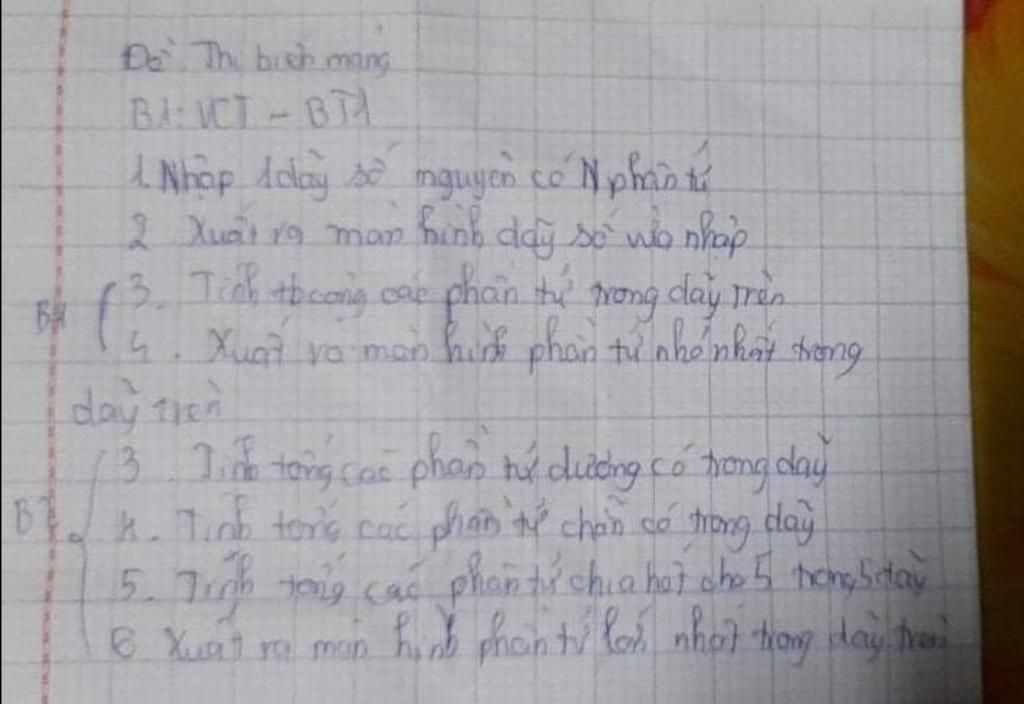 Đề Thi biến mảng
B1: VCT - BT1
1. Nhập 1 dãy số nguyên có N phần tử
2 Xuất ra màn hình dãy số vừa nhập
3. Tính tbcộng các phần tử trong dãy trên
4. Xuất ra màn hình phần tử nhỏ nhất trong
dãy trên
3 Tính tổng các phần tử dương có trong dãy
4. Tính tổng các phần tử chẵn có trong dãy
5. Tính tổng các phần tử chia hết cho 5 trong dãy
6 Xuất ra màn hình phần tử lớn nhất trong dãy trên